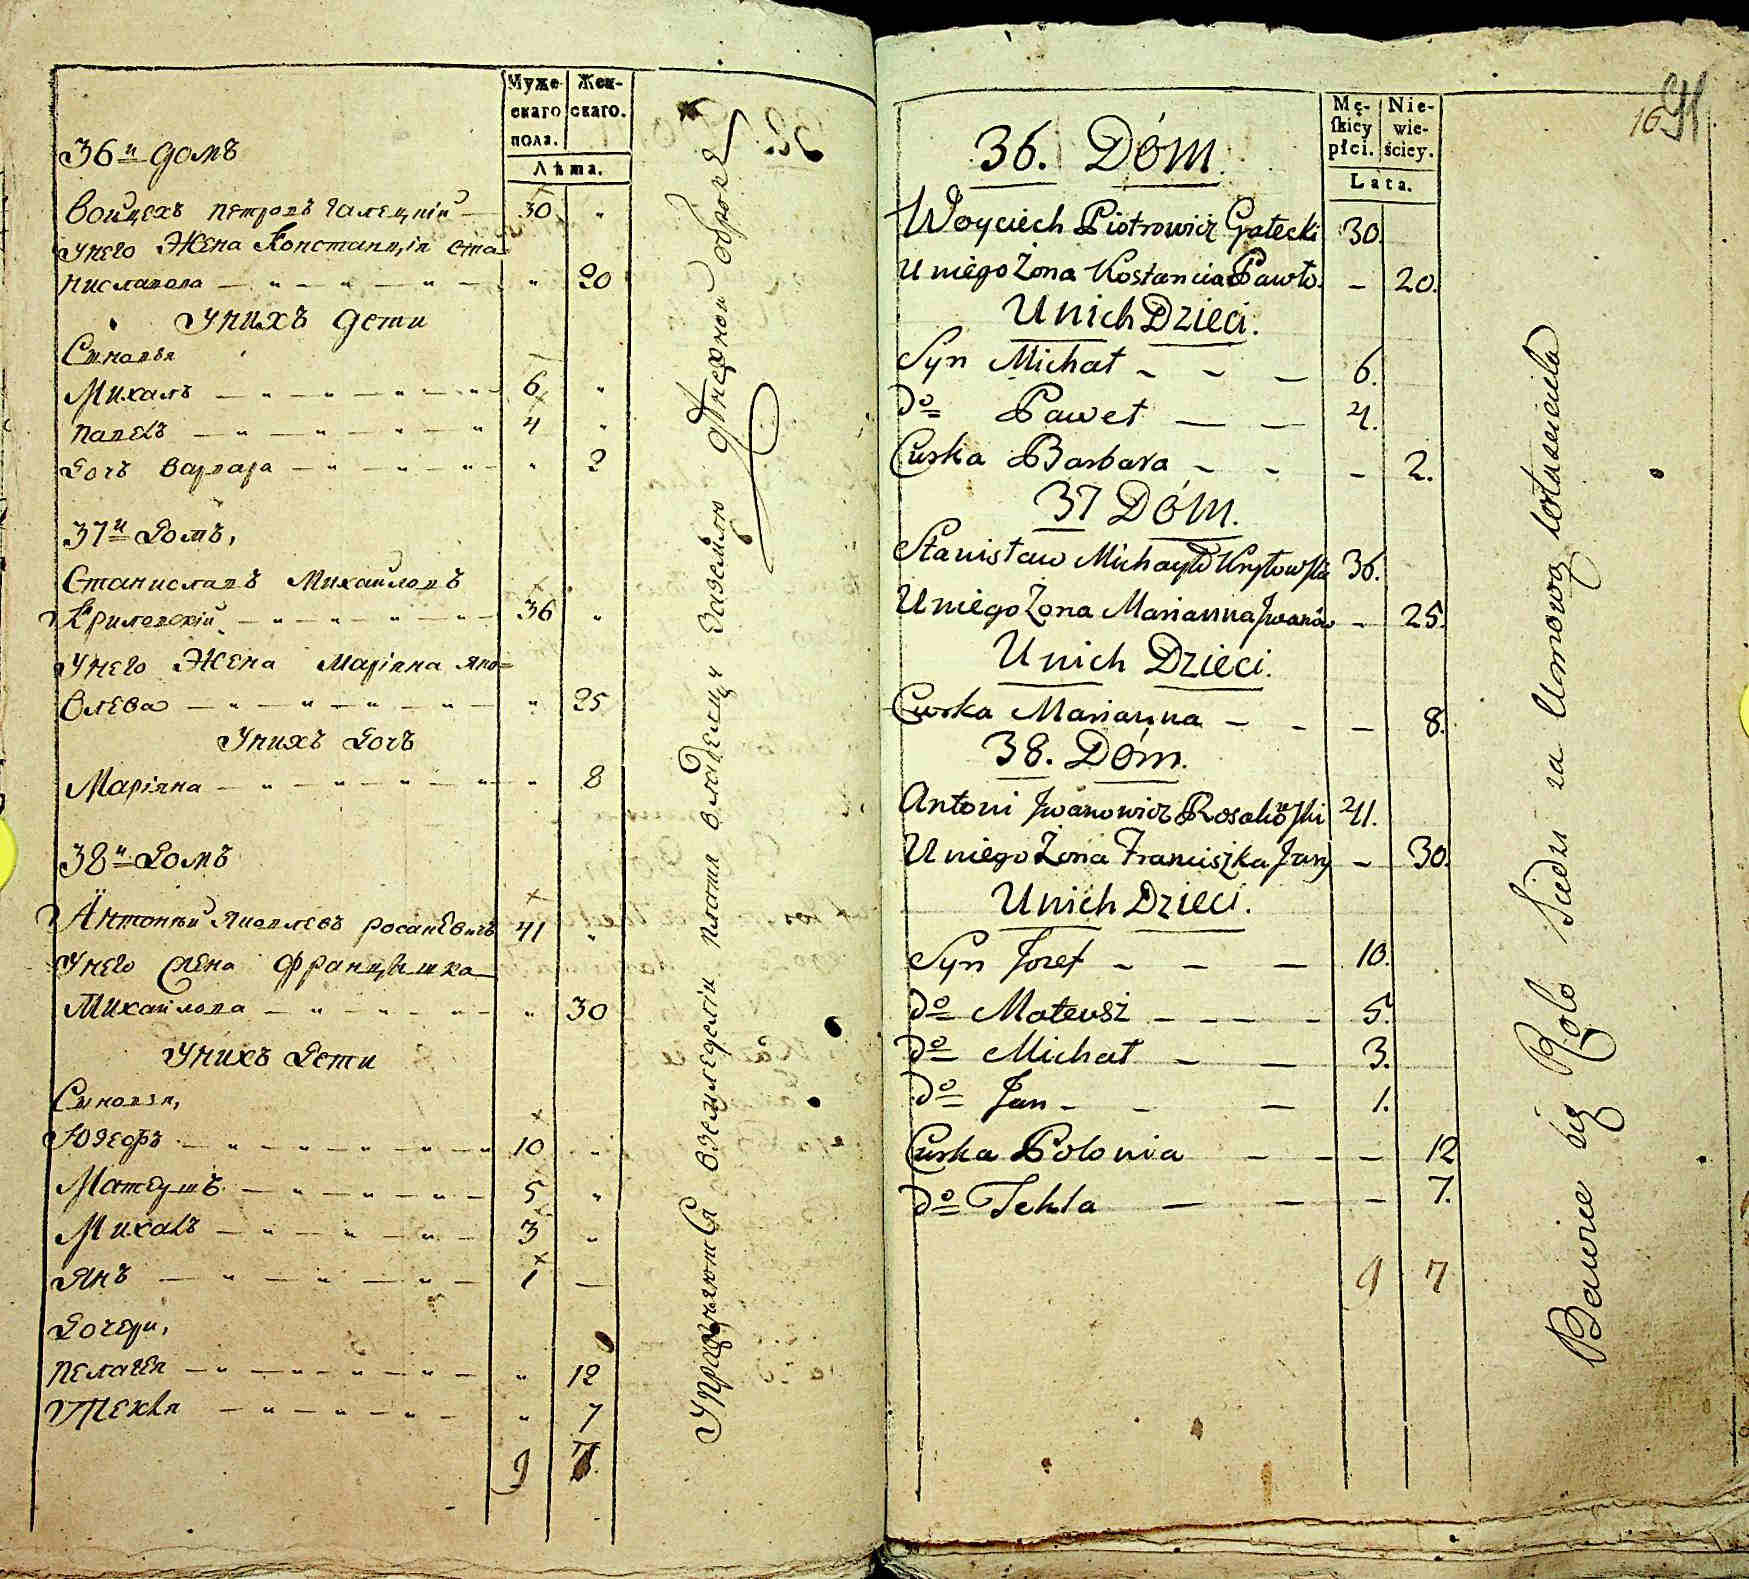 Муже-
скаго
пола.
Жен-
скаго.
Лѣта.
36й домъ
Войцехъ Петровъ Галецкiй — 30 "
У него Жена Констанцiя Ста-
ниславова — " — " — " — " 20
У нихъ дети
Сыновья
Михалъ — " — " — " — " — 6 "
Павелъ — " — " — " — " 4 "
Дочь Варвара — " — " — " — " 2
37й Домъ,
Станиславъ Михайловъ
Крилевскiй — " — " — " — " — 36 "
У него Жена Марiяна Яко-
влева — " — " — " — " — " 25
У нихъ Дочь
Марiяна — " — " — " — " — " 8
38й Домъ
Антонiй Яковлевъ 41 "
У него жена Францишка
Михайлова — " — " — " — " 30
У нихъ Дети
Сыновья,
Юзефъ — " — " — " — " — 10 "
Матеушъ — " — " — " — 5 "
Михалъ — " — " — " — 3 "
Янъ — " — " — " — 1 —
Дочери,
Пелагея — " — " — " — " 12
Текля — " — " — " — " 7
9 7
Упражняются в земледелiи платя владелицы за землю
Mę-
skiey
płci.
Nie-
wie-
ściey.
Lata.
16
36. Dóm
Woyciech Piotrowicz Gałecki 30.
U niego Żona Kostancia Pawło. — 20.
U nich Dzieci.
Syn Michał — — — 6.
do Paweł — — 4.
Curka Barbara — — — 2.
37 Dóm.
Stanisław Michayło Kryłowski 36.
U niego Żona Marianna Iwanow — 25.
U nich Dzieci.
Curka Marianna — — — 8.
38. Dóm.
Antoni Jwanowicz 41.
U niego Żona Franciszka — 30.
U nich Dzieci.
Syn Jozef — — — 10.
do Mateusz — — — — 5.
do Michał — — 3.
do Jan — — — 1.
Curka Polonia — — — 12
do Tekla — — — 7.
9 7
Bawice się Rolo za Umową